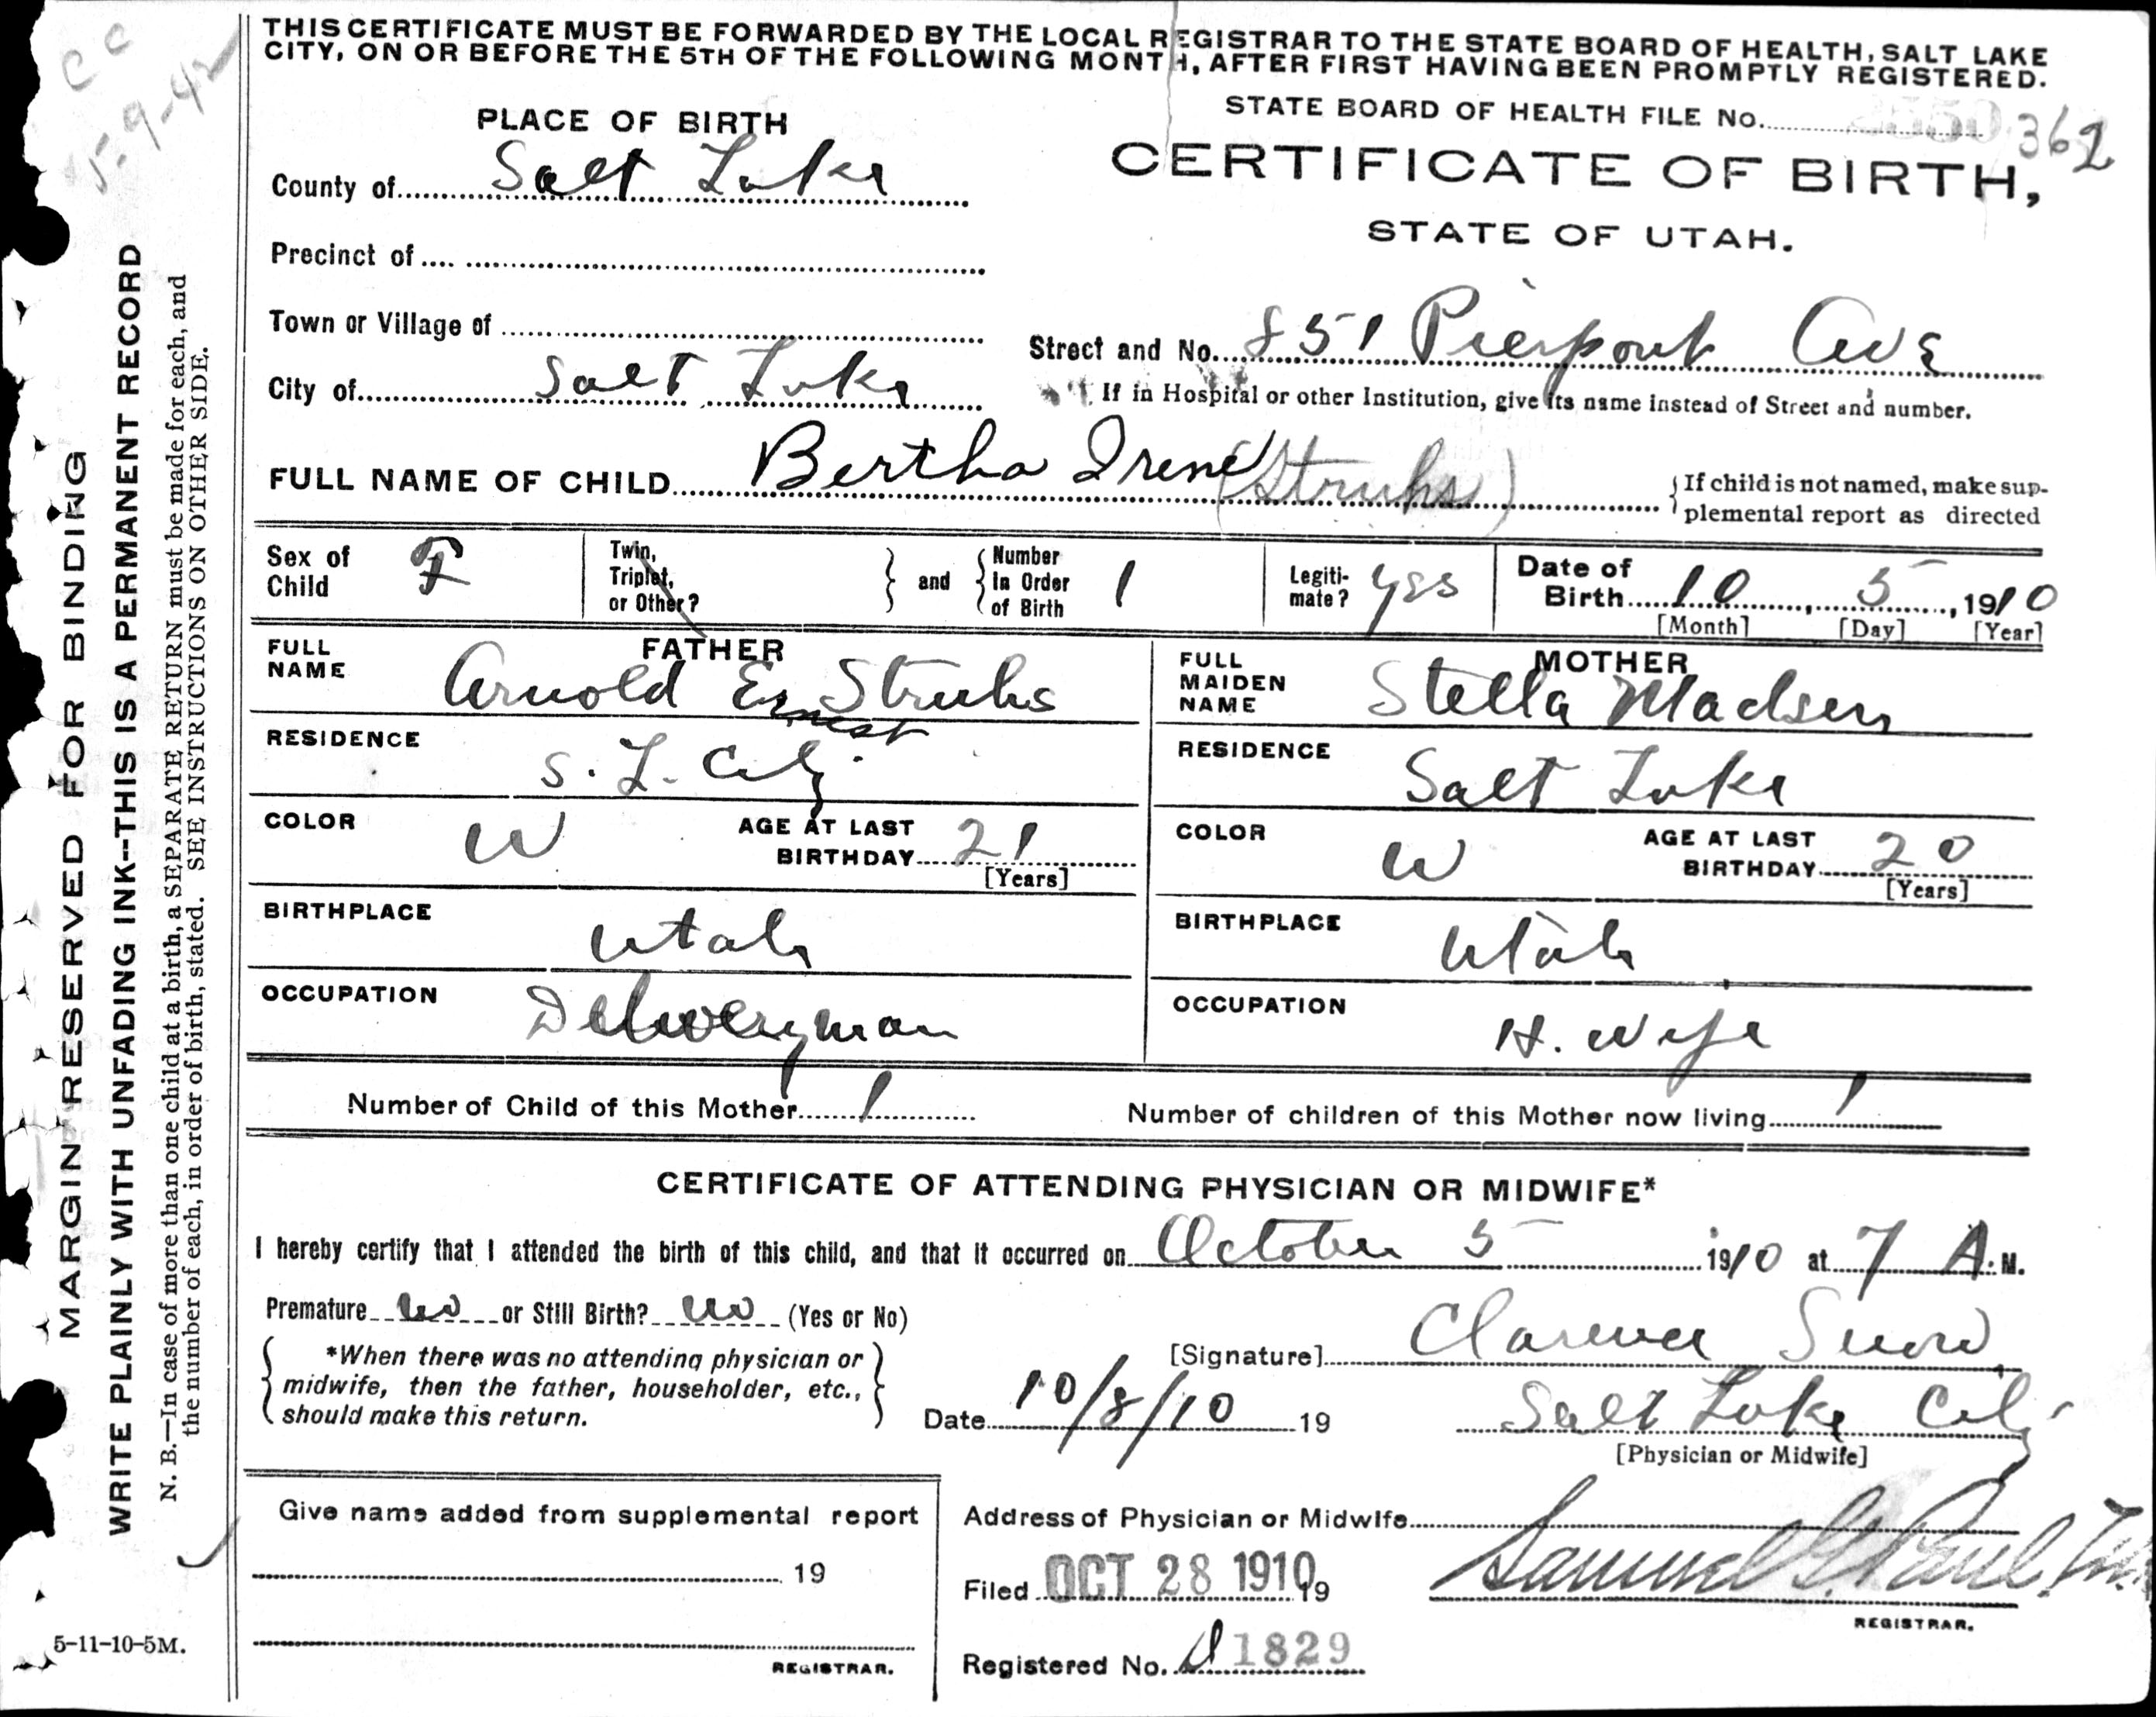 THIS CERTIFICATE MUST BE FORWARDED BY THE LOCAL REGISTRAR TO THE STATE BOARD OF HEALTH, SALT LAKE
CITY, ON OR BEFORE THE 5TH OF THE FOLLOWING MONTH, AFTER FIRST HAVING BEEN PROMPTLY REGISTERED.
CC
5-9-42
STATE BOARD OF HEALTH FILE No. 362
PLACE OF BIRTH
CERTIFICATE OF BIRTH,
STATE OF UTAH.
County of Salt Lake
Precinct of
Town or Village of
Street and No. 851 Pierpont Ave
City of Salt Lake
If in Hospital or other Institution, give its name instead of Street and number.
FULL NAME OF CHILD Bertha Irene (Struhs)
If child is not named, make sup-
plemental report as directed
Sex of Child F
Twin, Triplet, or Other?
and
Number In Order of Birth 1
Legiti-mate? yes
Date of Birth 10, 5, 1910
[Month] [Day] [Year]
FATHER
FULL NAME Arnold Ernest Struhs
RESIDENCE S. L. City
COLOR W AGE AT LAST BIRTHDAY 21
[Years]
BIRTHPLACE Utah
OCCUPATION Deliveryman
MOTHER
FULL MAIDEN NAME Stella Madsen
RESIDENCE Salt Lake
COLOR W AGE AT LAST BIRTHDAY 20
[Years]
BIRTHPLACE Utah
OCCUPATION H. Wife
Number of Child of this Mother 1 Number of children of this Mother now living 1
CERTIFICATE OF ATTENDING PHYSICIAN OR MIDWIFE*
I hereby certify that I attended the birth of this child, and that it occurred on October 5 1910 at 7 A.M.
Premature no or Still Birth? no (Yes or No)
*When there was no attending physician or
midwife, then the father, householder, etc.,
should make this return.
[Signature] Clarence Snow
Date 10/8/10 19
Salt Lake City
[Physician or Midwife]
Give name added from supplemental report
19
REGISTRAR.
Address of Physician or Midwife
Filed OCT 28 1910 19
Samuel G. Paul
REGISTRAR.
Registered No. 1829
MARGIN RESERVED FOR BINDING
WRITE PLAINLY WITH UNFADING INK--THIS IS A PERMANENT RECORD
N. B.—In case of more than one child at a birth, a SEPARATE RETURN must be made for each, and
the number of each, in order of birth, stated. SEE INSTRUCTIONS ON OTHER SIDE.
5-11-10-5M.